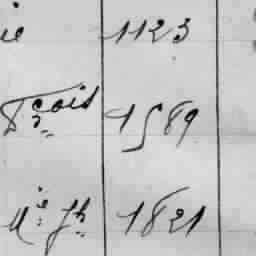 ie 1123
Fçois 1589
Mie Jh 1821